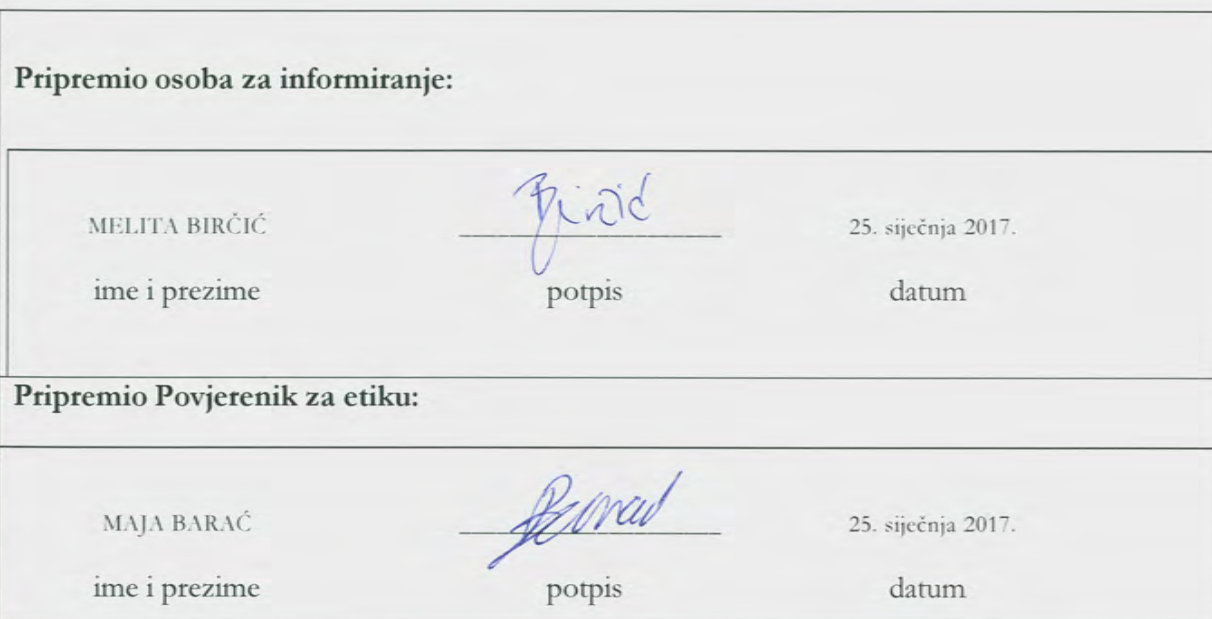 Pripremio osoba za informiranje:
MELITA BIRČIĆ Birčić 25. siječnja 2017.
ime i prezime potpis datum
Pripremio Povjerenik za etiku:
MAJA BARAĆ 25. siječnja 2017.
ime i prezime potpis datum